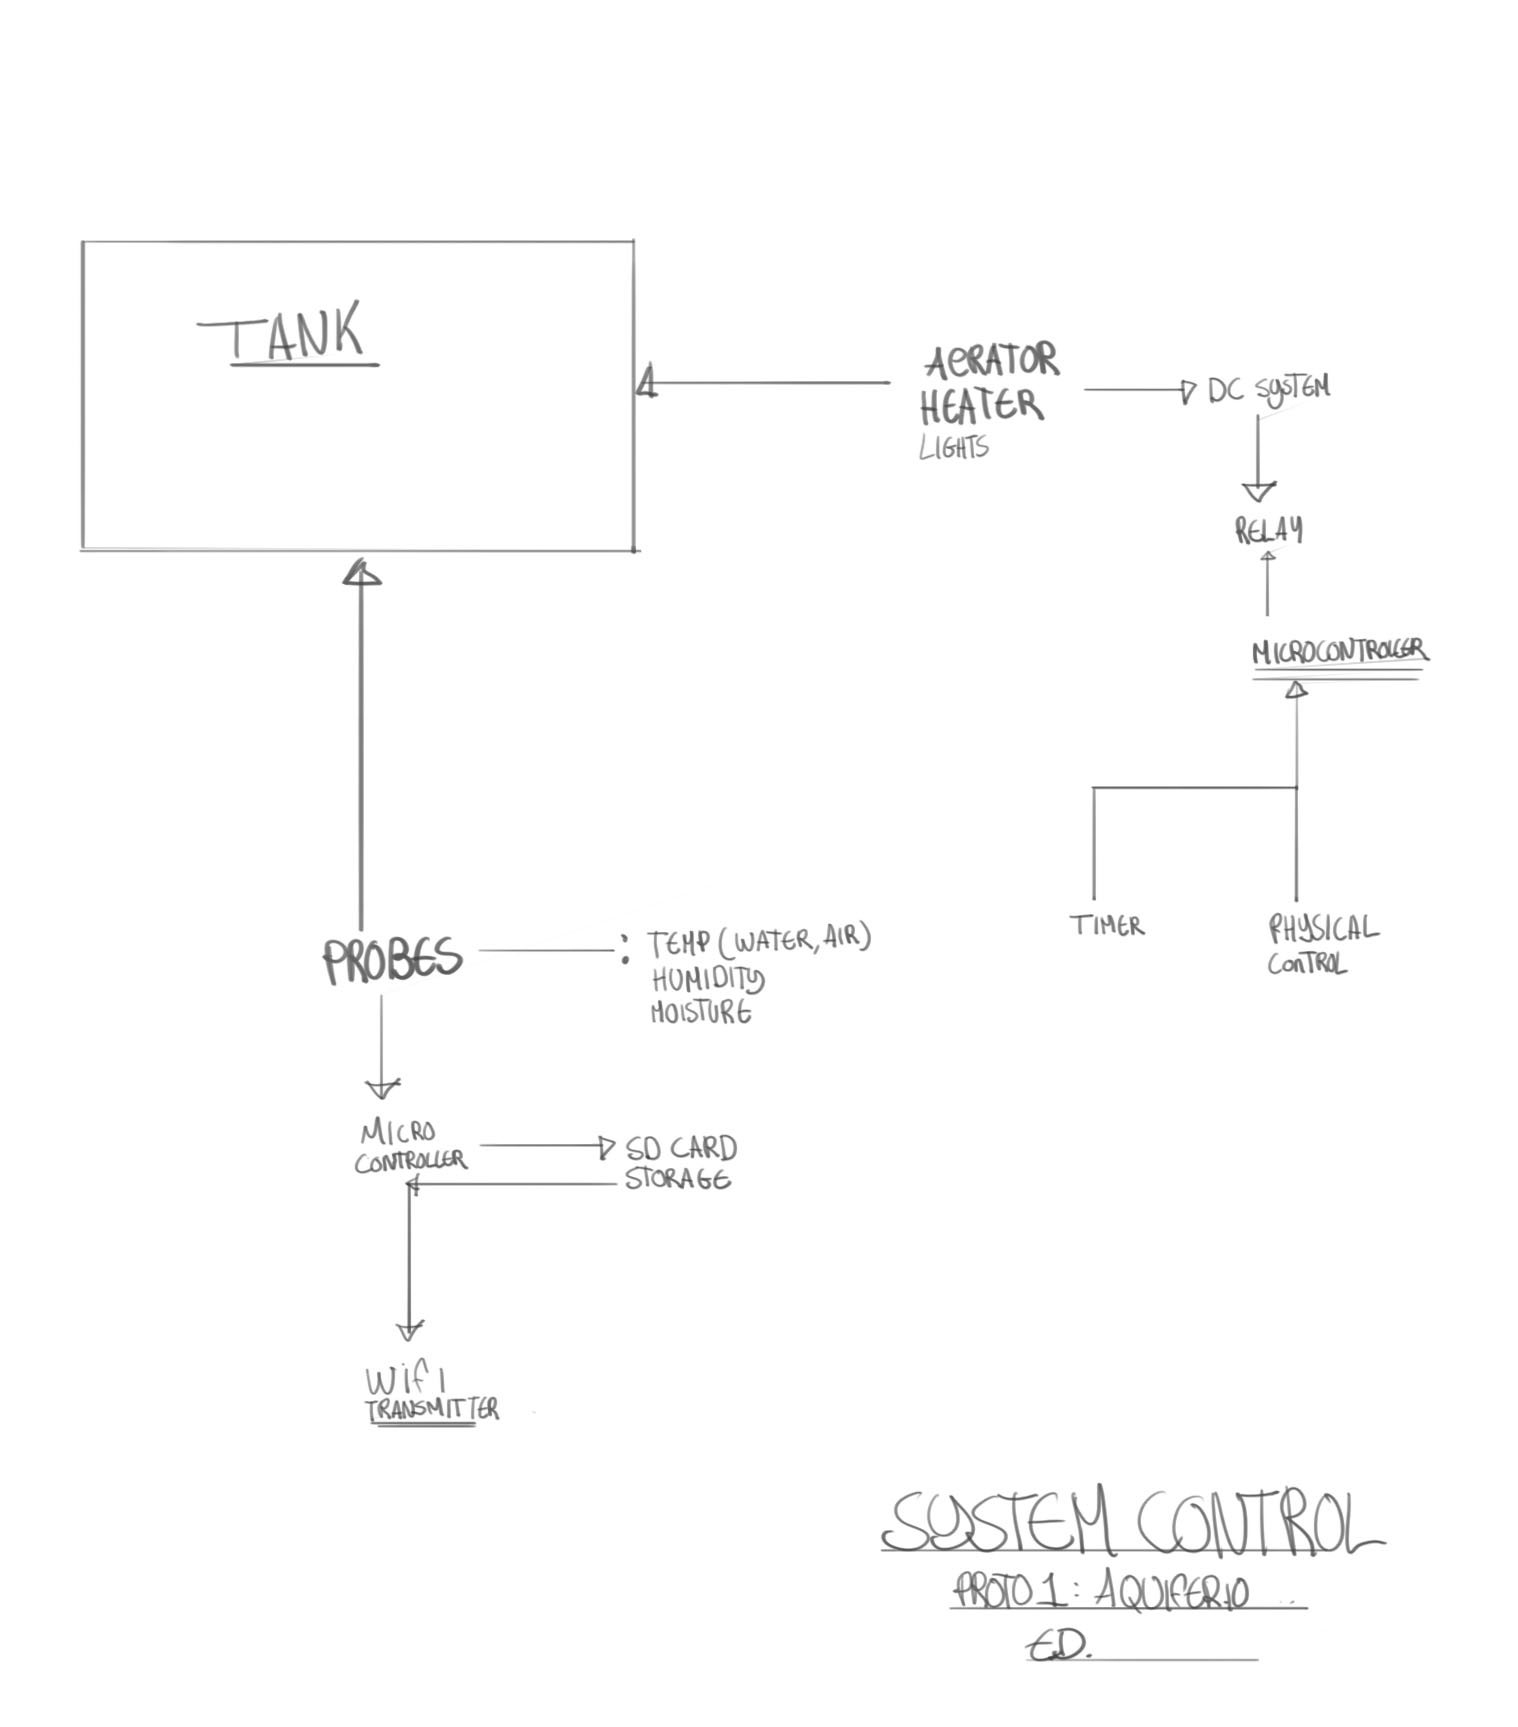 TANK
AERATOR
HEATER
LIGHTS
DC SYSTEM
RELAY
MICROCONTROLLER
TIMER
PHYSICAL
CONTROL
PROBES
: TEMP (WATER, AIR)
HUMIDITY
MOISTURE
MICRO
CONTROLLER
SD CARD
STORAGE
WiFI
TRANSMITTER
SYSTEM CONTROL
PROTO 1: AQUIFERIO
ED.